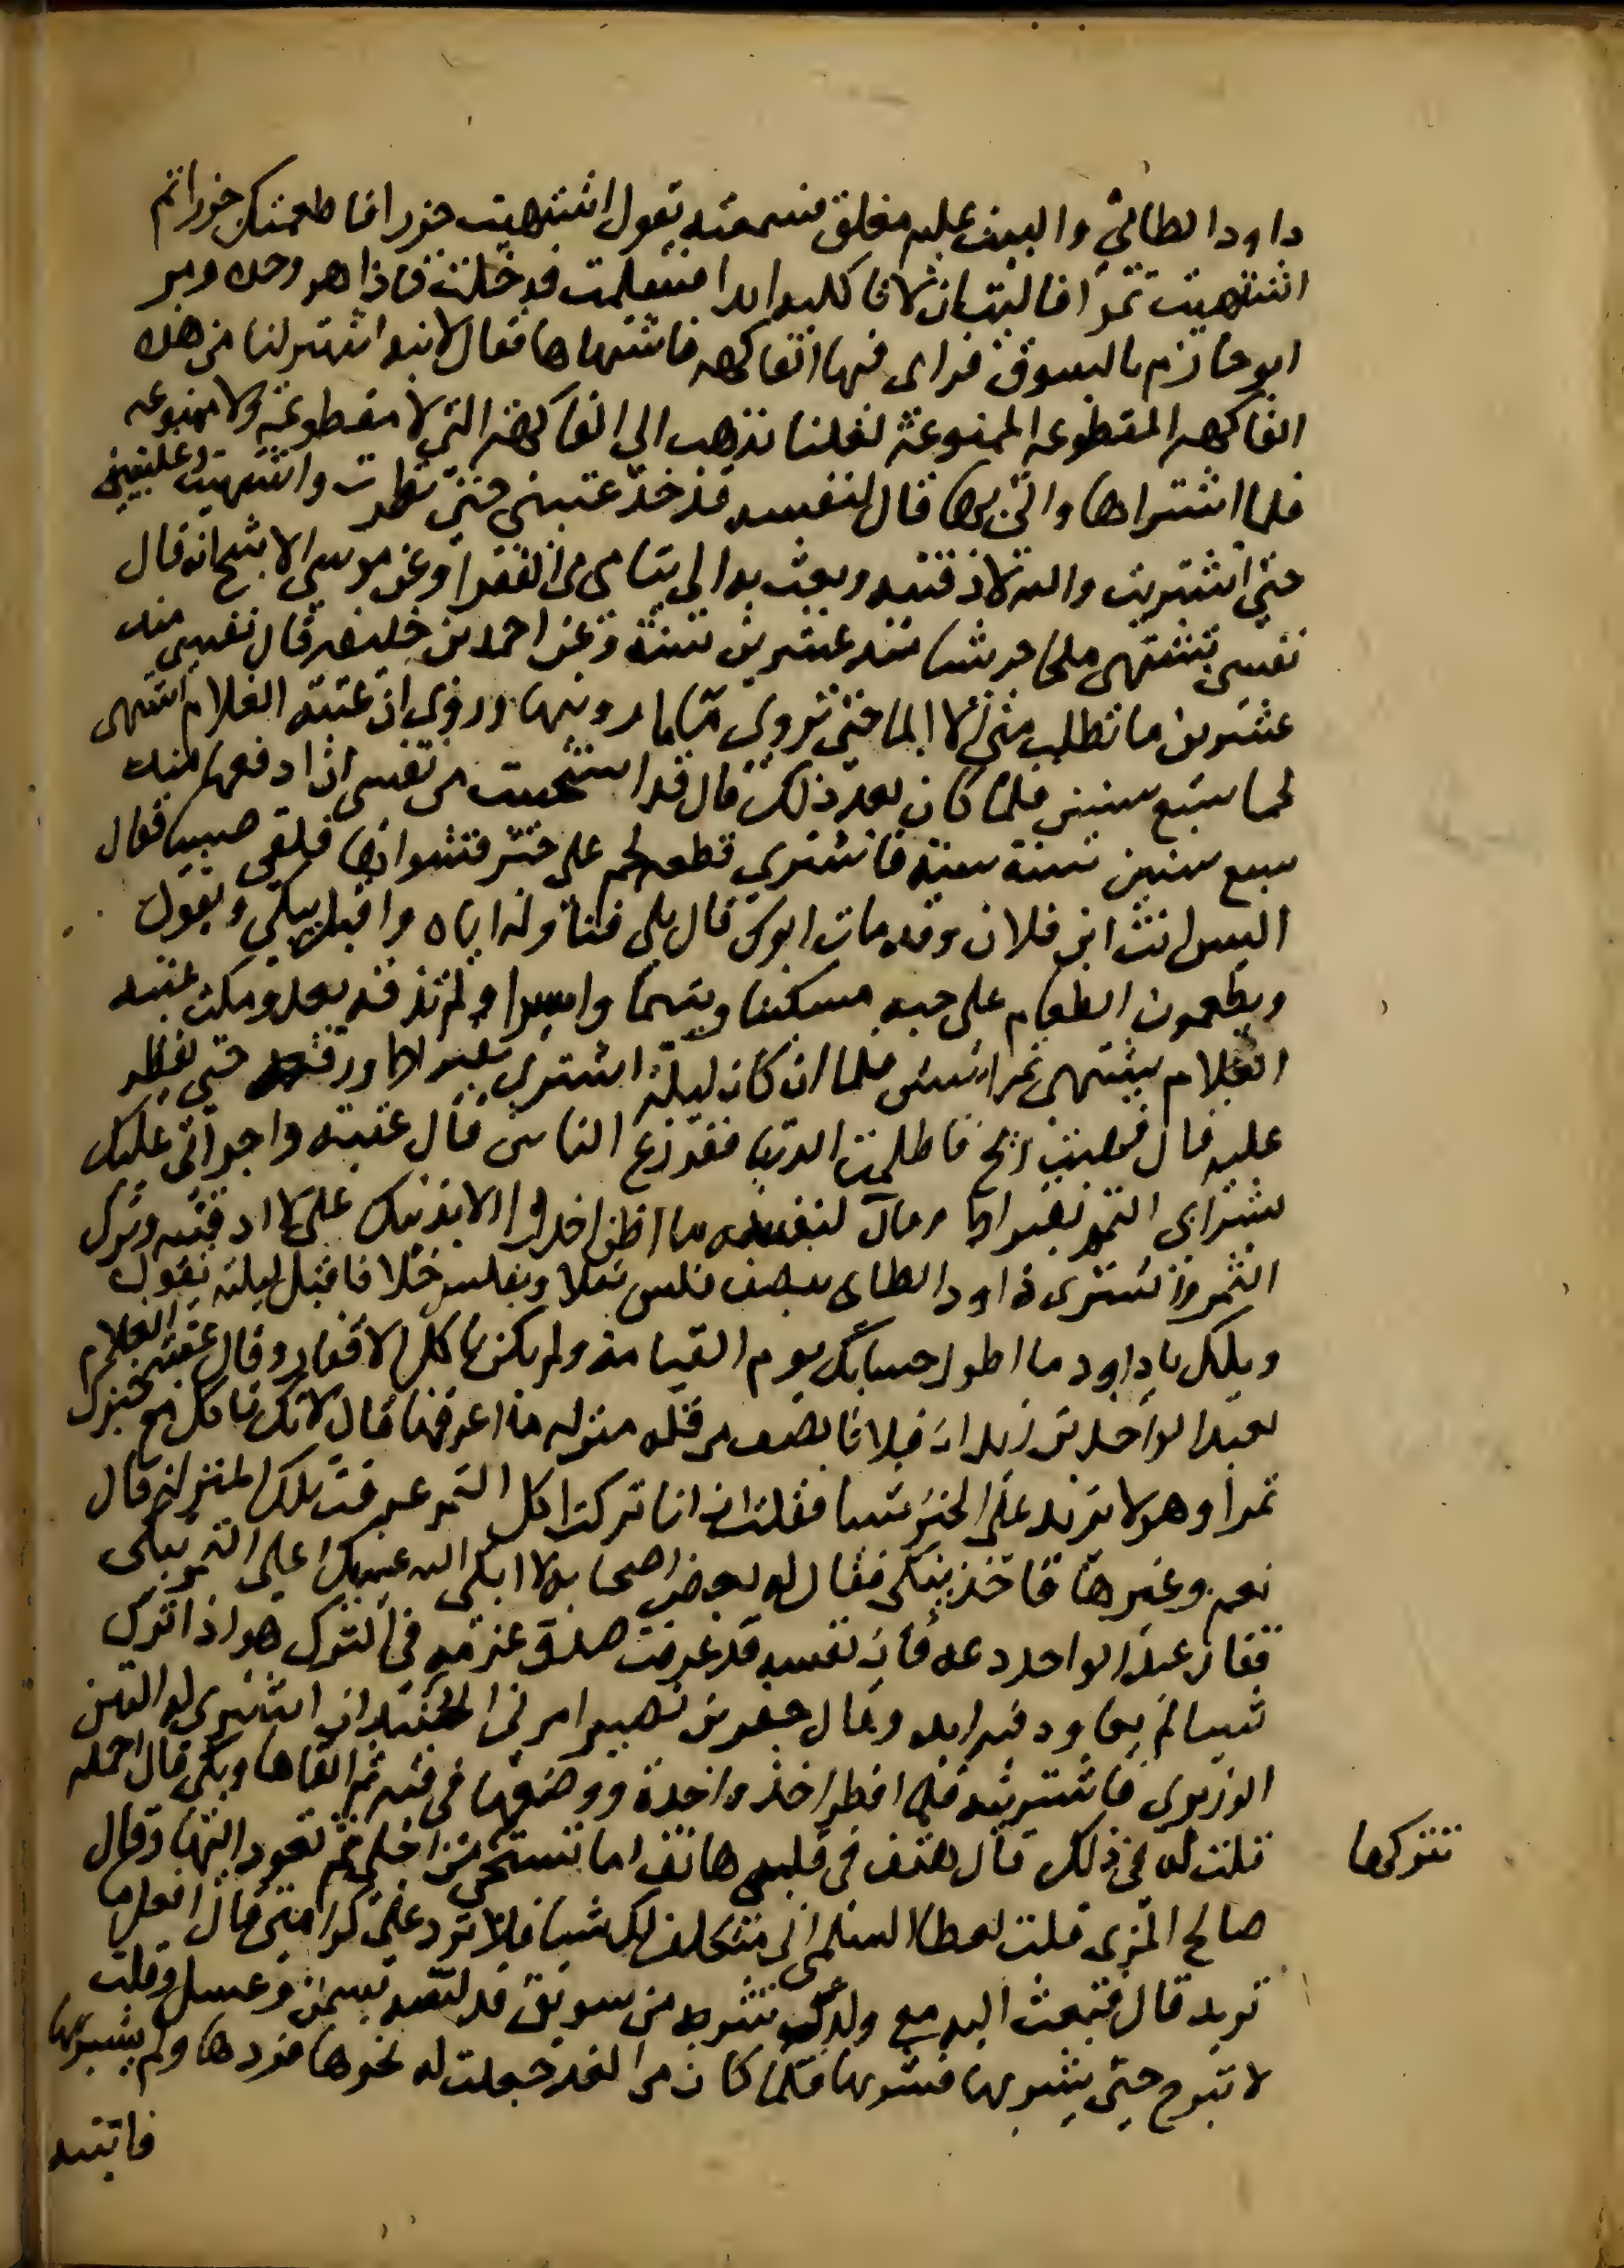 داود الطائي والبيت عليه مغلق فسمعته يقول اشتهيت جزرا فاطعمتك جزرا ثم
اشتهيت تمرا فاليت ان لا تاكليه ابدا فسلمت فدخلت فاذا هو وحده ومر
ابو حازم بالسوق فراى فيها الفاكهه فاشتهاها فقال لابنه اشتر لنا من هذه
الفاكهه المقطوعه الممنوعة لعلنا نذهب الى الفاكهة التي لا مقطوعة ولا ممنوعه
فلما اشتراها واتى بها قال لنفسه قد خدعتيني حتى نظرت واشتهيت وغلبتيني
حتى اشتريت والله لا ذقتيه وبعث به الى يتامى من الفقرا وعن موسى الاشج انه قال
نفسي تشتهي ملحا جريشا منذ عشرين سنة وعن احمد بن خليفه قال نفسي منذ
عشرين ما تطلب مني الا الما حتى تروى فما ارويتها وروى ان عتبة الغلام اشتهى
لحما سبع سنين فلما كان بعد ذلك قال قد استحييت من نفسي ان ادفعها منذ
سبع سنين سنة سنة فاشترى قطعة لحم على خبز فشواها فلقي صبيا فقال
اليس انت ابن فلان وقد مات ابوك قال بلى فناوله اياه واقبل يبكي ويقول
ويطعمون الطعام على حبه مسكينا ويتيما واسيرا ولم يذقه بعد ومكث عتبه
الغلام يشتهي تمرا سنين فلما ان كان ليلة اشترى بقيراط ورفعه حتى يفطر
عليه قال فهبت ريح فاظلمت الدنيا ففزع الناس قال عتبه واجراتي عليك
بشراي التمر بقيراط وقال لنفسه ما اظن اخذوا الا بذنبك علي لا اذقته وترك
التمر واشترى داود الطاى بنصف فلس بقلا وبفلس خلا فاقبل ليلته يقول
ويلك يا داود ما اطول حسابك يوم القيامة ولم يكن ياكل الا قفارا وقال عتبة الغلام
لعبد الواحد بن زيد ان فلانا يصف من قلبه منزله ما اعرفها قال لانك تاكل مع خبزك
تمرا وهو لا يزيد على الخبز شيا فقلت ان انا تركت اكل التمر عرفت تلك المنزلة قال
نعم وغيرها فاخذ يبكي فقال له بعض اصحابه لا ابكى الله عينيك اعلى التمر تبكى
فقال عبد الواحد دعه فان نفسه قد عرفت صدق عزمه في الترك هو اذا ترك
شيا لم يعاود فيه ابدا وقال جعفر بن نصير امرني الجنيد ان اشتري له التين
الوزيري فاشتريته فلما افطر اخذ واحدة ووضعها في فيه ثم القاها وبكى قال احمله
تتركها
قلت له في ذلك قال هتف في قلبي هاتف اما تستحي من اجلي ثم تعود اليها وقال
صالح المزي قلت لعطا السلمي اني متكلف لك شيا فلا ترد علي كرامتي قال افعل ما
تريد قال فبعثت اليه مع ولدي شربه من سويق قد لتته بسمن وعسل وقلت
لا تبرح حتى يشربها فشربها فلما كان من الغد جعلت له نحوها فردها ولم يشربها
فاتيته